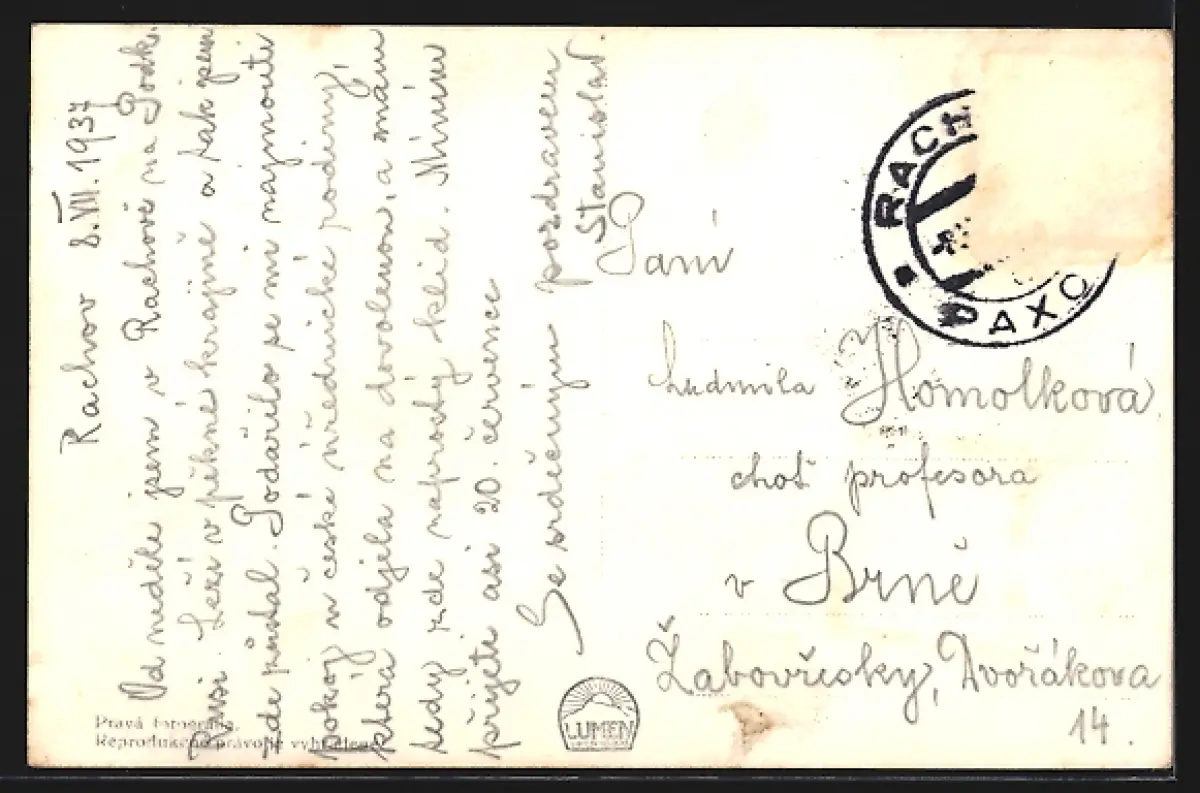 Rachov 8.VII.1937
Od neděle jsem v Rachově na Podk.
Rusi. Leží v pěkné krajině a tak jsem
zde zůstal. Podařilo se mi najmouti
pokoj u české úřednické rodiny,
která odjela na dovolenou, a mám
tedy zde naprostý klid. Míním
přijeti asi 20. července
Se srdečným pozdravem
Stanislav.
Paní
Ludmila Homolková
choť profesora
v Brně
Žabovřesky, Dvořákova
14.
RACH
РАХО
Pravá fotografie.
Reprodukční právo je vyhrazeno
LUMEN